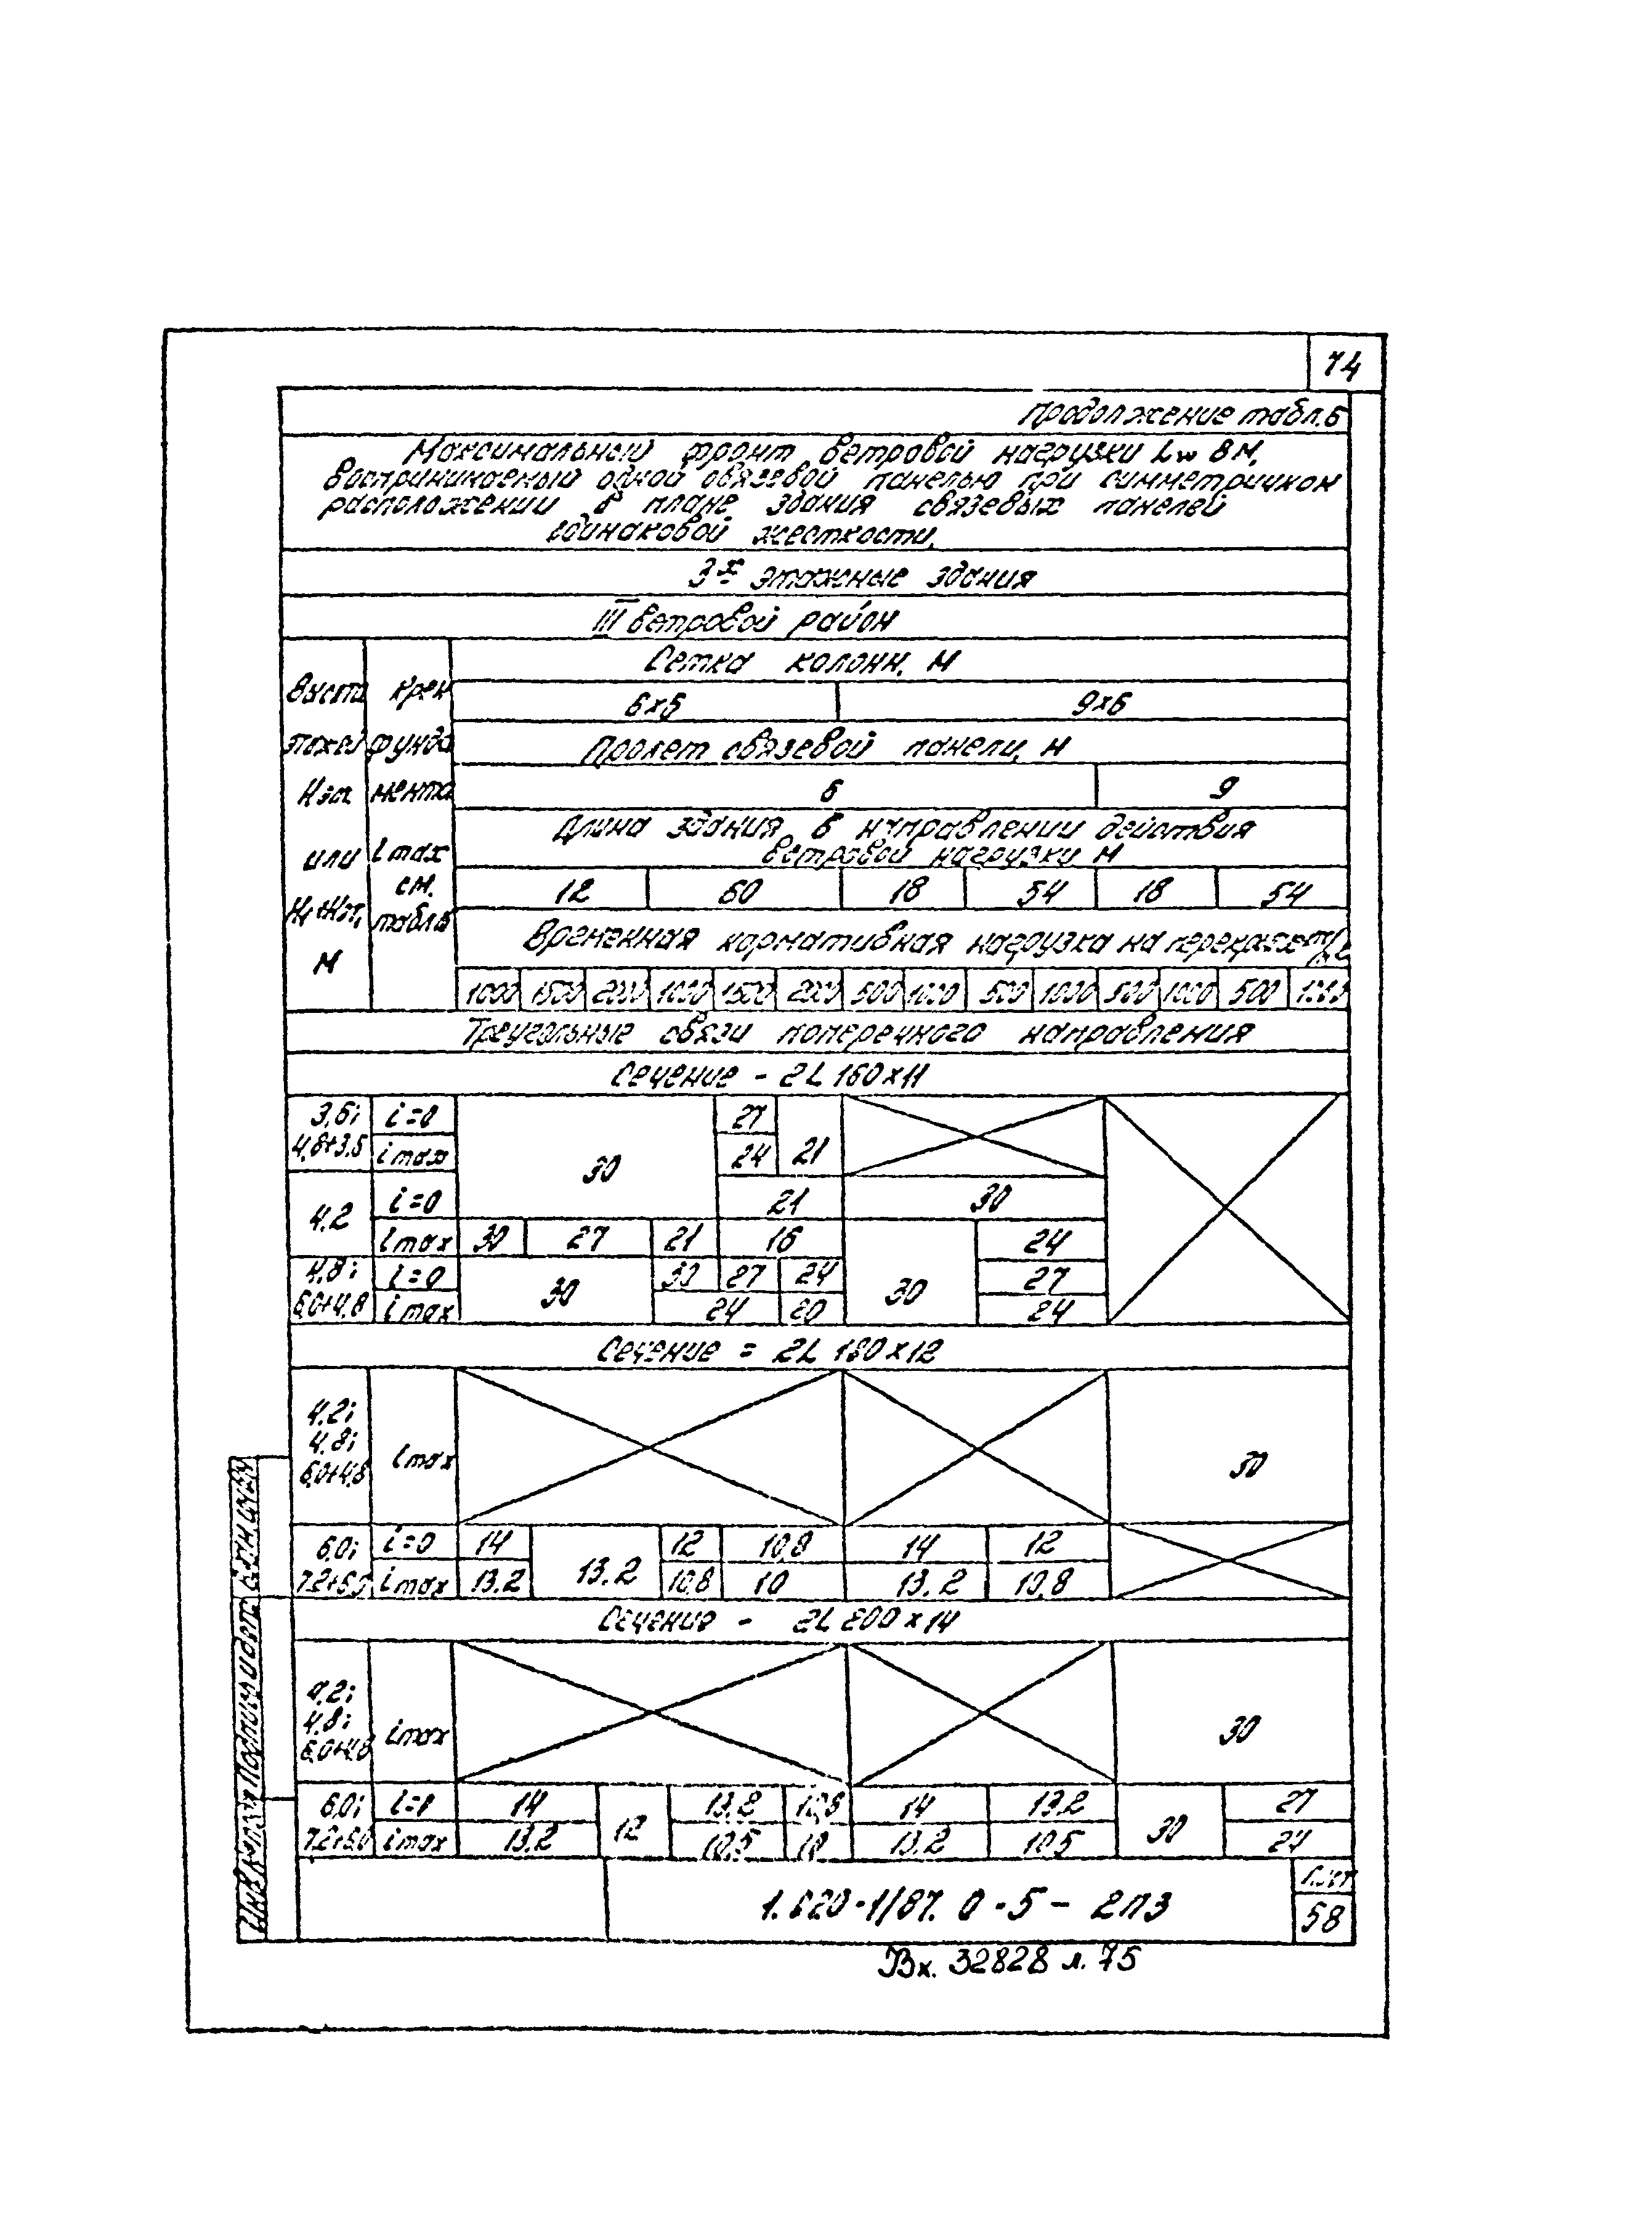 74
Продолжение табл.6
Максимальный фронт ветровой нагрузки Lw в м,
воспринимаемый одной связевой панелью при симметричном
расположении в плане здания связевых панелей
одинаковой жесткости.
3-х этажные здания
III ветровой район
Высота этажей Нэт или Н1+Нэт, м
крен фундамента imax см. табл.6
Сетка колонн, м
6х6 9х6
Пролет связевой панели, м
6 9
Длина здания в направлении действия
ветровой нагрузки м
12 60 18 54 18 54
Временная нормативная нагрузка на перекрытие
1000 1500 2000 1000 1500 2000 500 1000 500 1000 500 1000 500
Треугольные связи поперечного направления
Сечение - 2L 160х11
3,6; i=0 27
4,8+3,6 imax 30 24 21
4.2 i=0 21 30
imax 30 27 21 16 24
4,8; i=0 30 30 27 24 30 27
6,0+4,8 imax 24 20 24
Сечение = 2L 180х12
4.2;
4.8;
6,0+4,8 imax 30
6,0; i=0 14 12 10,8 14 12
7.2+6,0 imax 13.2 13.2 10,8 10 13.2 10,8
Сечение - 2L 200х14
4,2;
4,8;
6,0+4,8 imax 30
6,0; i=0 14 12 13,2 10,8 14 13,2 30 27
7.2+6,0 imax 13.2 10,5 10 13.2 10,5 24
1.020-1/87. 0-5-2ПЗ
Лист
58
Вх. 32828 л. 75
Подпись и дата